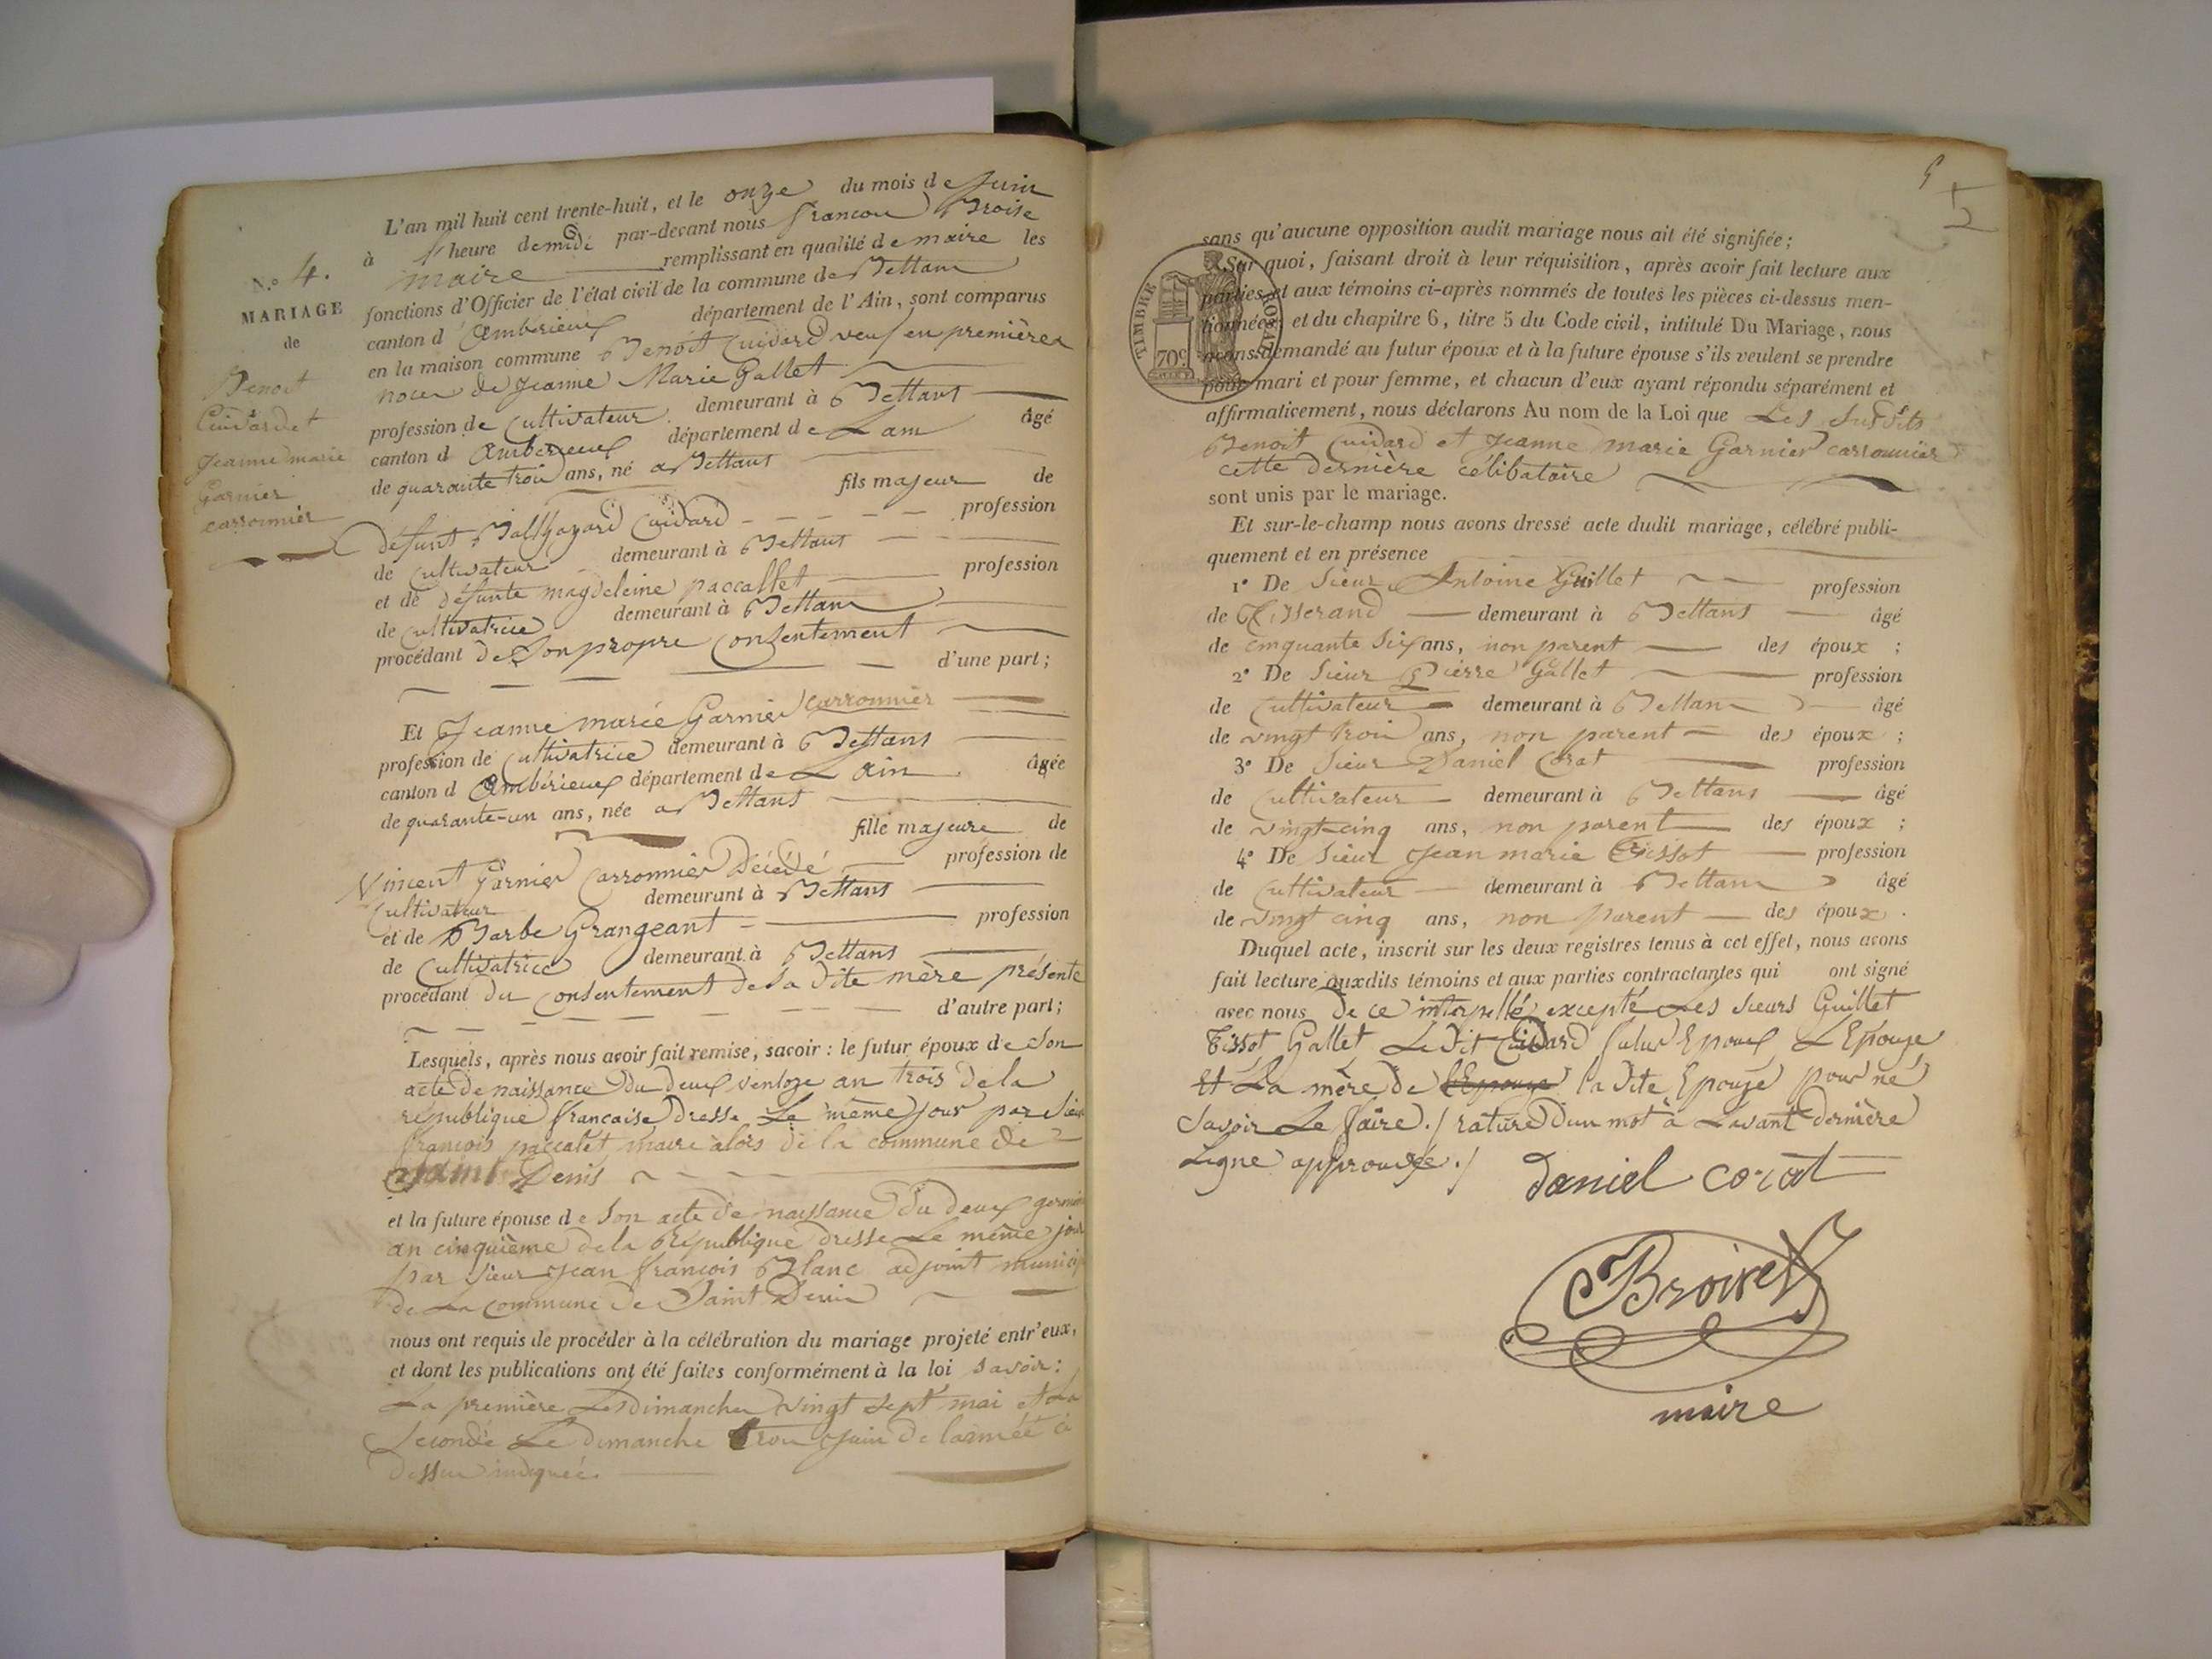 L'an mil huit cent trente-huit, et le onze du mois de Juin
à 1 heure demidi par-devant nous francou Broise
maire remplissant en qualité de maire les
fonctions d'Officier de l'état civil de la commune de Bettans
canton d Ambérieux département de l'Ain, sont comparus
en la maison commune Benoit Cuidard veuf en premières
noces de Jeanne Marie Gallet
profession de Cultivateur demeurant à Bettans
canton d Ambérieux département de Lain âgé
de quarante trois ans, né a Bettans
fils majeur de
défunt Balthazard Cuidard profession
de Cultivateur demeurant à Bettans
et de défunte magdeleine paccallet profession
de Cultivatrice demeurant à Bettans
procédant de Son propre Consentement
d'une part;
N.o 4.
MARIAGE
de
Benoit
Cuidard et
Jeanne marie
Garnier
carronnier
Et Jeanne marie Garnier carronnier
profession de Cultivatrice demeurant à Bettans
canton d Ambérieux département de L ain âgée
de quarante-un ans, née a Bettans
fille majeure de
Vincent Garnier Carronnier Décédé profession de
Cultivateur demeurant à Bettans
et de Barbe Grangeant profession
de Cultivatrice demeurant à Bettans
procédant du Consentement de la dite mère présente
d'autre part;
Lesquels, après nous avoir fait remise, savoir: le futur époux de son
acte de naissance du deux ventoze an trois de la
republique francaise dressé Le même jour par Sieur
françois paccalet maire alors de la commune de
Saint Denis
et la future épouse de son acte de naissance du deux germinal
an cinquième de la République dresse Le même jour
par Sieur Jean françois Blanc adjoint municip
de La commune de Saint Denis
nous ont requis de procéder à la célébration du mariage projeté entr'eux,
et dont les publications ont été faites conformément à la loi savoir:
La première Le dimanche vingt sept mai et La
Seconde Le dimanche trois Juin de lannée ci
dessus indiquée.
5
sans qu'aucune opposition audit mariage nous ait été signifiée;
Sur quoi, faisant droit à leur réquisition, après avoir fait lecture aux
parties et aux témoins ci-après nommés de toutes les pièces ci-dessus men-
tionnées, et du chapitre 6, titre 5 du Code civil, intitulé Du Mariage, nous
avons demandé au futur époux et à la future épouse s'ils veulent se prendre
pour mari et pour femme, et chacun d'eux ayant répondu séparément et
affirmativement, nous déclarons Au nom de la Loi que Les Susdits
Benoit Cuidard et Jeanne marie Garnier carronnier
cette dernière célibataire
sont unis par le mariage.
TIMBRE ROYAL
70c
Et sur-le-champ nous avons dressé acte dudit mariage, célébré publi-
quement et en présence
1° De Sieur Antoine Guillet profession
de Tisserand demeurant à Bettans âgé
de cinquante Six ans, non parent des époux ;
2° De Sieur Pierre Gallet profession
de Cultivateur demeurant à Bettans âgé
de vingt trois ans, non parent des époux ;
3° De Sieur Daniel Corat profession
de Cultivateur demeurant à Bettans âgé
de vingt-cinq ans, non parent des époux ;
4° De Sieur Jean marie Tissot profession
de Cultivateur demeurant à Bettans âgé
de vingt cinq ans, non parent des époux .
Duquel acte, inscrit sur les deux registres tenus à cet effet, nous avons
fait lecture auxdits témoins et aux parties contractantes qui ont signé
avec nous de ce interpellé excepté Les Sieurs Guillet
Tissot Gallet Le dit Cuidard futur Epoux L'Epouse
Et La mère de l'Epouse la dite Epouse pour ne
Savoir Le faire./ rature dun mot à Lavant dernière
Ligne approuvée./
Daniel corat
Broiset
maire